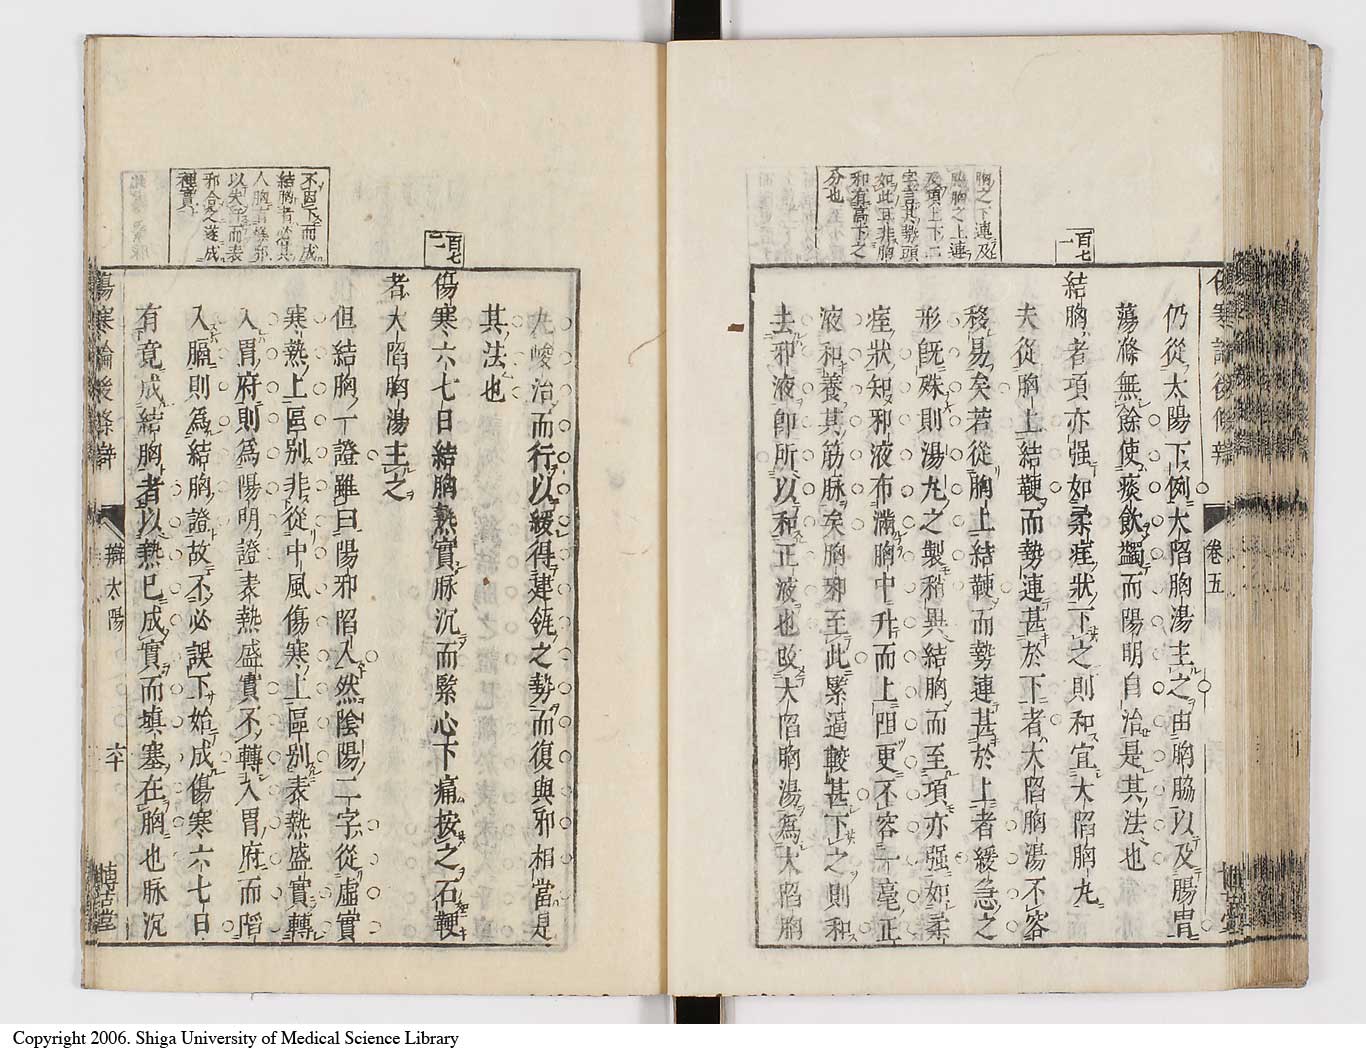 胸之下連及
脇胸之上連
及項上下二
字言其勢頭
如此耳非胸
邪有高下之
分也
百七
一
仍從太陽下例大陷胸湯主之由胸脇以及腸胃
蕩滌無餘使痰飲蠲而陽明自治是其法也
結胸者項亦强如柔痓狀下之則和宜大陷胸丸
夫從胸上結鞕而勢連甚於下者大陷胸湯不容
移易矣若從胸上結鞕而勢連甚於上者緩急之
形旣殊則湯丸之製稍異結胸而至項亦强如柔
痓狀知邪液布滿胸中升而上阻更不容一毫正
液和養其筋脉矣胸邪至此緊逼較甚下之則和
去邪液卽所以和正液也改大陷胸湯爲大陷胸
卷五
不因下而成
結胸者必其
人胸有
以失汗而表
邪合之遂成
種實
百七
二
丸峻治而行以緩得建瓴之勢而復與邪相當是
其法也
傷寒六七日結胸熱實脉沉而緊心下痛按之石鞕
者大陷胸湯主之
但結胸一證雖曰陽邪陷入然陰陽二字從虛實
寒熱上區别非從中風傷寒上區别表熱盛實轉
入胃府則爲陽明證表熱盛實不轉入胃府而陷
入膈則爲結胸證故不必誤下始成傷寒六七日
有竟成結胸者以熱已成實而塡塞在胸也脉沉
傷寒論後條辨
辨太陽
六十
博古堂
Copyright 2006. Shiga University of Medical Science Library